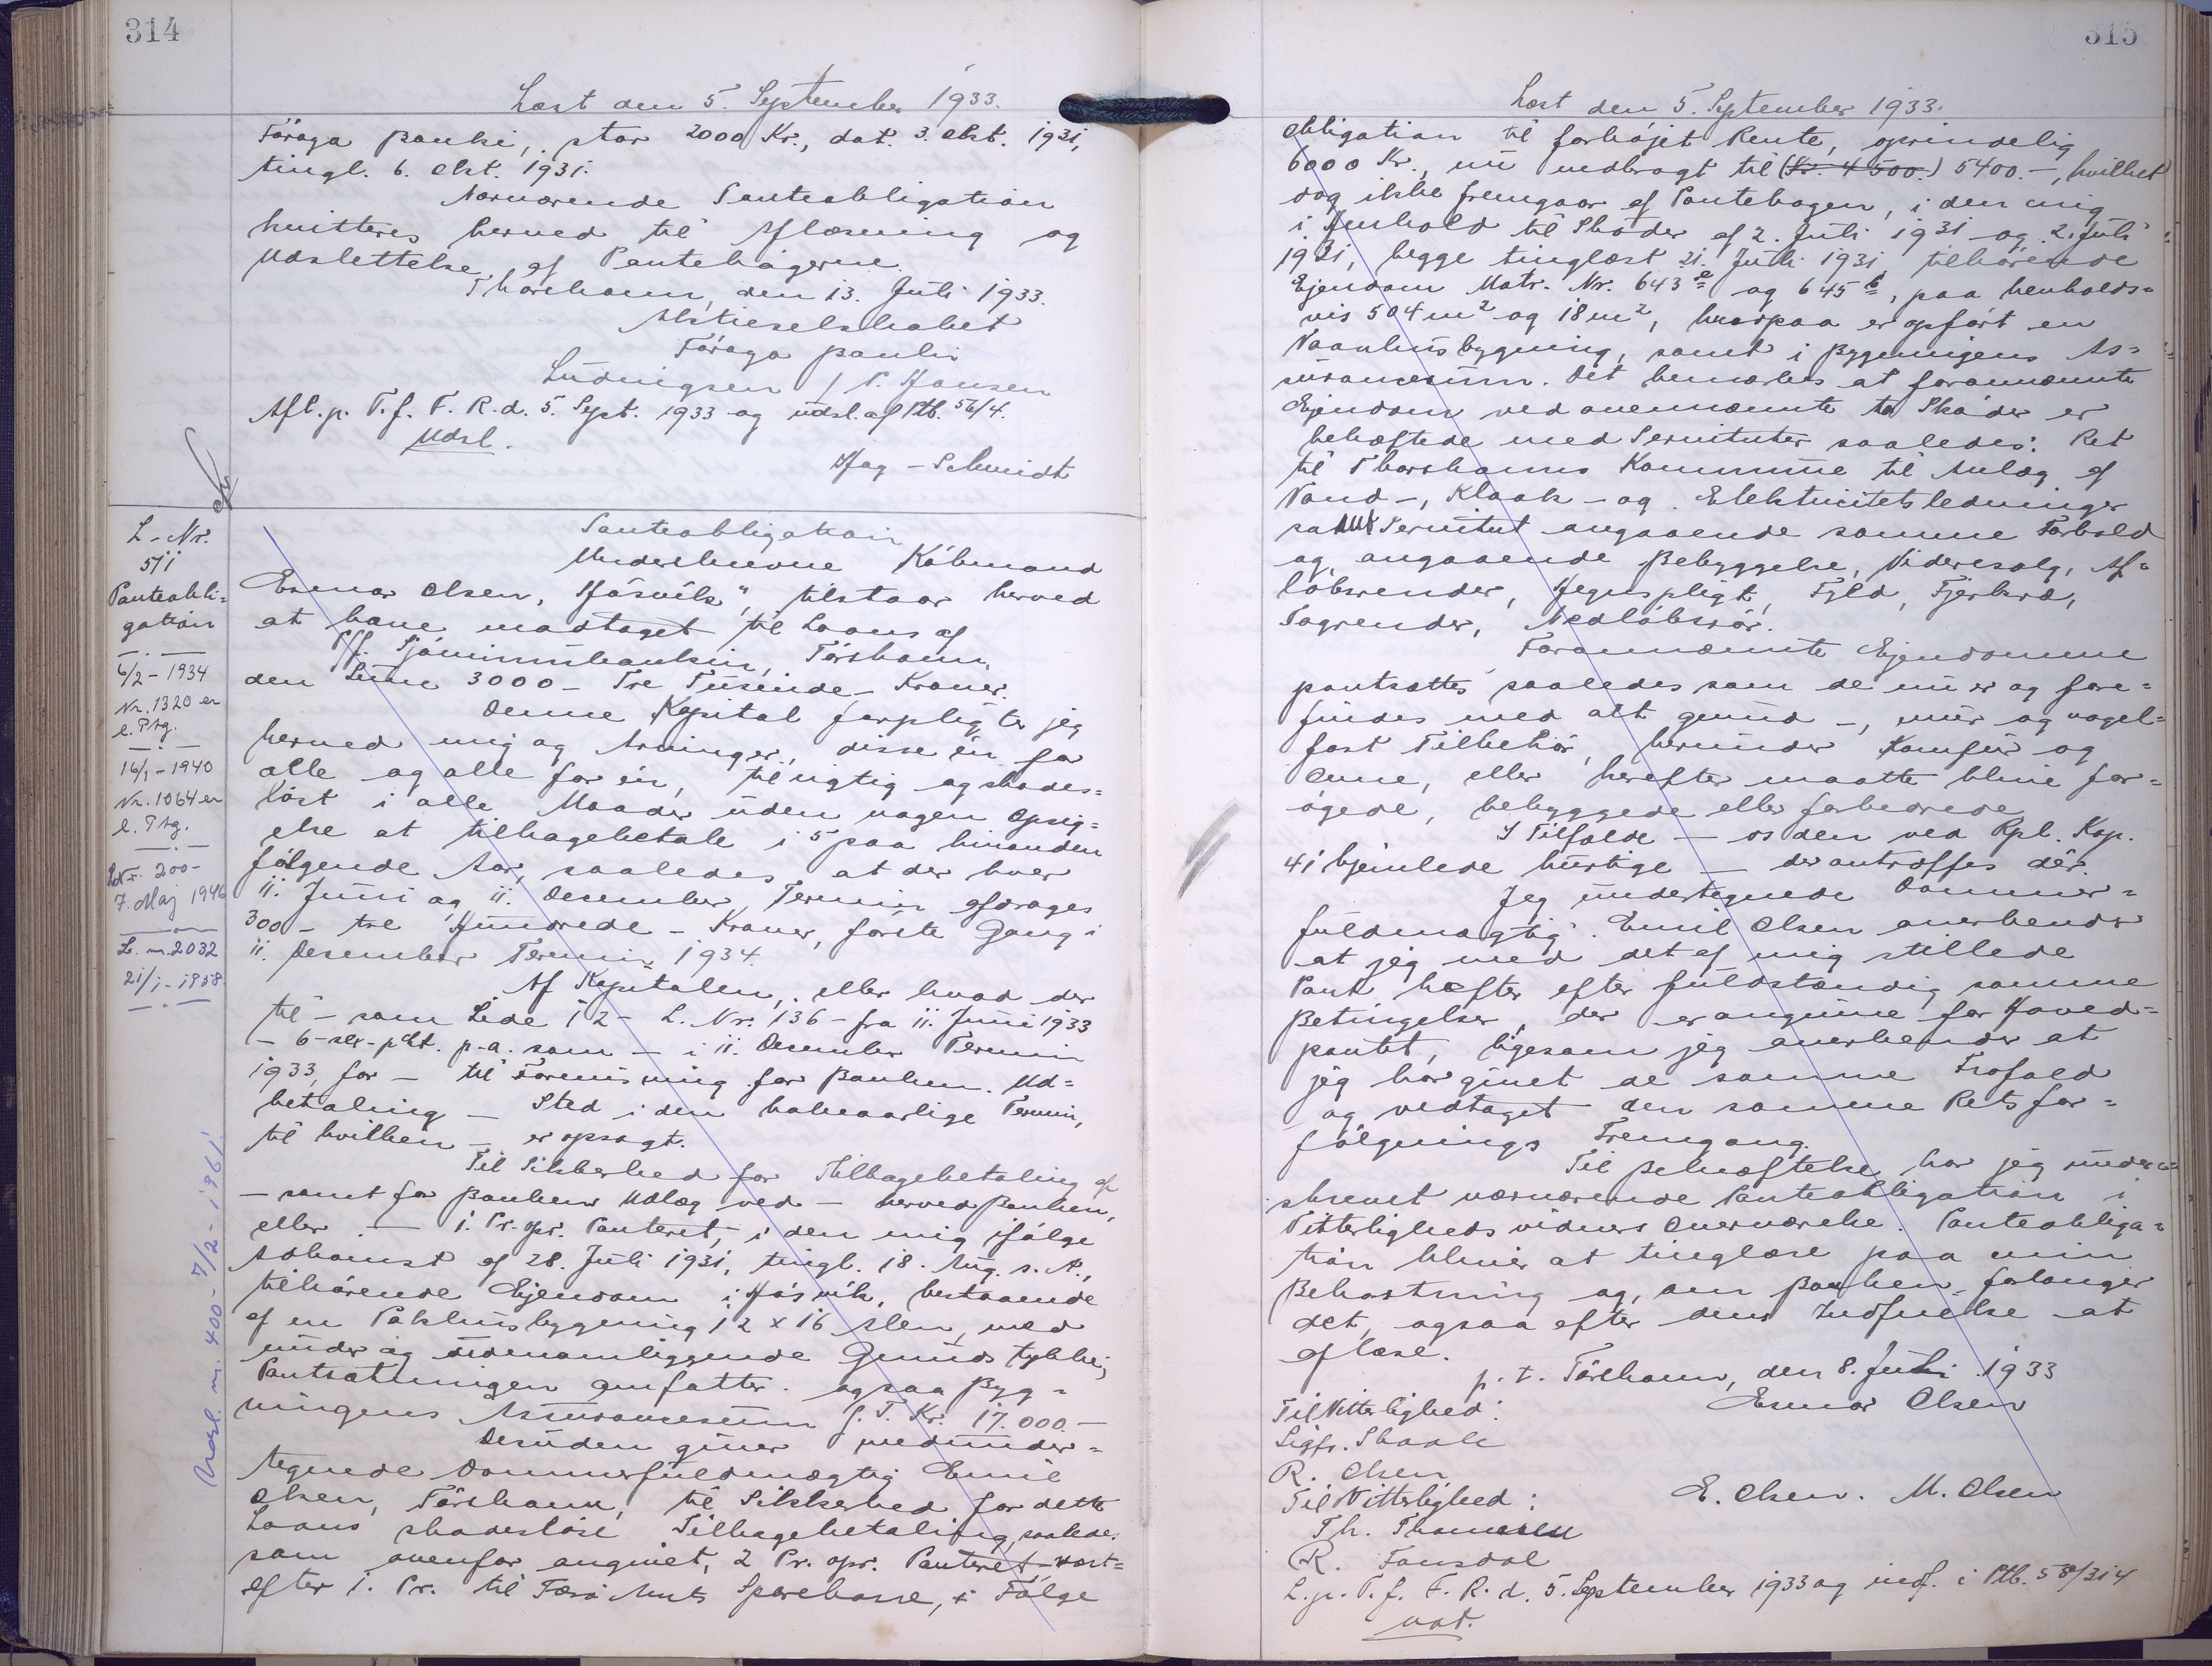 314
Læst den 5. September 1933.
Føroya Banki, stor 2000 Kr., dat. 3. Okt. 1931,
tingl. 6. Okt. 1931.
Nærværende Panteobligation
kvitteres herved til Aflæsning og
Udslettelse af Pantebøgerne.
Thorshavn, den 13. Juli 1933.
Aktieselskabet
Føroya Banki
Ludvigsen / P. Hansen
Afl. p. T. f. F. R. d. 5. Sept. 1933 og udsl. af Ptb. 56/4.
Udsl.
Hag-Schmidt
L-Nr.
511
Panteobli=
gation
6/2-1934
Nr. 1320 er
l. Ptg.
16/1-1940
Nr. 1064 er
l. Ptg.
200-
7. Maj 1946
L. nr. 2032
21/1-1958.
Udsl. nr. 400 - 7/2-1961.
Panteobligation
Underskrevne Købmand
Esmar Olsen, Hósvík, tilstaar herved
at have modtaget til Laans af
P/f. Sjóvinnubankin, Tórshavn,
den Sum 3000 - Tre Tusinde - Kroner.
Denne Kapital forpligter jeg
herved mig og Arvinger, disse én for
alle og alle for én, til rigtig og skades=
løst i alle Maader uden nogen Opsig=
else at tilbagebetale i 5 paa hinanden
følgende Aar, saaledes at der hver
11. Juni og 11. December Termin afdrages
300 - tre Hundrede - Kroner, første Gang i
11. December Termin 1934.
Af Kapitalen, eller hvad der
til - som Lide 12 - L. Nr. 136 - fra 11. Juni 1933
- 6 - sex - pCt. p.a. som - i 11. December Termin
1933, for - til Forrentning for Banken. Ud=
betaling - Sted i den halvaarlige Termin,
til hvilken - er opsagt.
Til Sikkerhed for Tilbagebetaling af
- samt for Bankens Udlæg ved - herved Banken,
eller - 1. Pr. opr. Panteret, i den mig ifølge
Adkomst af 28. Juli 1931, tingl. 18. Aug. s. A.,
tilhørende Ejendom i Hósvík, bestaaende
af en Pakhusbygning 12 x 16 Alen, med
under og udenomliggende Grundstykke;
Pantsætningen omfatter ogsaa Byg=
ningens Assurancesum f. T. Kr. 17.000 -
Desuden giver medunder=
tegnede Dommerfuldmægtig Emil
Olsen, Tórshavn, til Sikkerhed for dette
Laans skadesløse Tilbagebetaling, saaledes
som ovenfor angivet, 2 Pr. opr. Panteret - næst=
efter 1. Pr. til Færø Amts Sparekasse, i Følge
315
Læst den 5. September 1933.
Obligation til forhøjet Rente, oprindelig
6000 Kr., nu nedbragt til (Kr. 4500.) 5400.-, hvilket
dog ikke fremgaar af Pantebogen, i den mig
i Henhold til Skøder af 2. Juli 1931 og 2. Juli
1931, begge tinglæst 21. Juli 1931 tilhørende
Ejendom Matr. Nr. 643 e og 645 b, paa henholds=
vis 504 m2 og 18 m2, hvorpaa er opført en
Vaanhusbygning, samt i Bygningens As=
surancesum. Det bemærkes at forannævnte
Ejendom ved ovennævnte to Skøder er
behæftede med Servituter saaledes: Ret
til Thorshavns Kommune til Anlæg af
Vand-, Kloak- og Elektricitetsledninger
samt Servitut angaaende samme Forhold
og angaaende Bebyggelse, Videresalg, Af=
løbsrender, Hegnspligt, Fyld, Fjerkræ,
Tagrender, Nedløbsrør.
Forannævnte Ejendomme
pantsættes saaledes som de nu er og fore=
findes med alt grund-, mur og nagel=
fast Tilbehør, herunder Komfur og
Ovne, eller herefter maatte blive for=
øgede, bebyggede eller forbedrede.
I Tilfælde - os den ved Rpl. Kap.
41 hjemlede hurtige - der antræffes dér.
Jeg undertegnede Dommer=
fuldmægtig Emil Olsen anerkender
at jeg med det af mig stillede
Pant hæfter efter fuldstændig samme
Betingelser, der er angivne for Hoved=
pantet, ligesom jeg anerkender at
jeg har givet de samme Frafald
og vedtaget den samme Retsfor=
følgnings Fremgang.
Til Bekræftelse har jeg under=
skrevet nærværende Panteobligation i
Vitterlighedsvidners Overværelse. Panteobliga=
tion bliver at tinglæse paa min
Bekostning og, om Banken forlanger
det, ogsaa efter dens Indfrielse at
aflæse.
p. t. Tórshavn, den 8. Juli 1933
Esmar Olsen
Til Vitterlighed:
Sigfr. Skaale
R. Olsen
Til Vitterlighed:
E. Olsen. M. Olsen
Th. Thomsen
R. Fonsdal
L. p. T. f. F. R. d. 5. September 1933 og indf. i Ptb. 58/314
not.